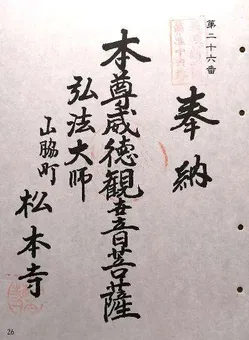 第二十六番
奉納
本尊威徳観世音菩薩
弘法大師
山脇町
松本寺
26